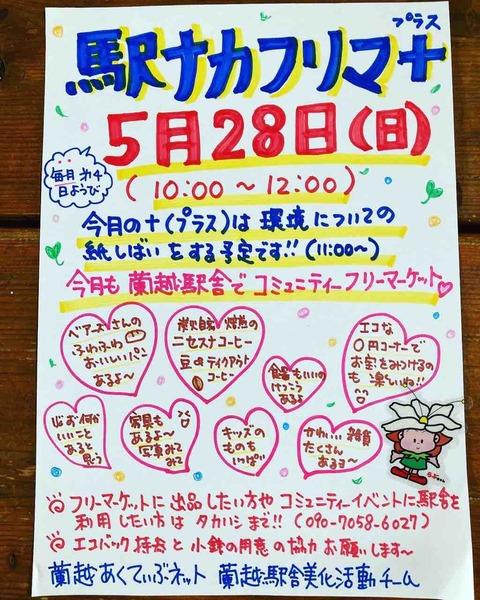 プラス
駅ナカフリマ+
5月28日(日)
毎月第4
日ようび
(10:00〜12:00)
今月の+(プラス)は環境についての
紙しばいをする予定です!!(11:00〜)
今月も蘭越駅舎でコミュニティーフリーマーケット♡
ベアーおさんの
ふわふわ
おいしいパン
あるよ〜
炭火自家焙煎の
ニセスナコーヒー
豆&テイクアウト
コーヒー
食器もいいの
けっこう
あるよ
エコな
0円コーナーで
お宝をみつけるの
も楽しいね!!
いいこと
あると
思う
家具も
あるよ〜
写真みて
みて
キッズの
ものも
いっぱい
かわいい雑貨
たくさん
あるヨ〜
フリーマーケットに出品したい方やコミュニティーイベントに駅舎を
利用したい方はタカハシまで!!(090-7058-6027)
エコバック持参と小銭の用意の協力お願いします〜
蘭越あくてぃぶネット 蘭越駅舎美化活動チーム